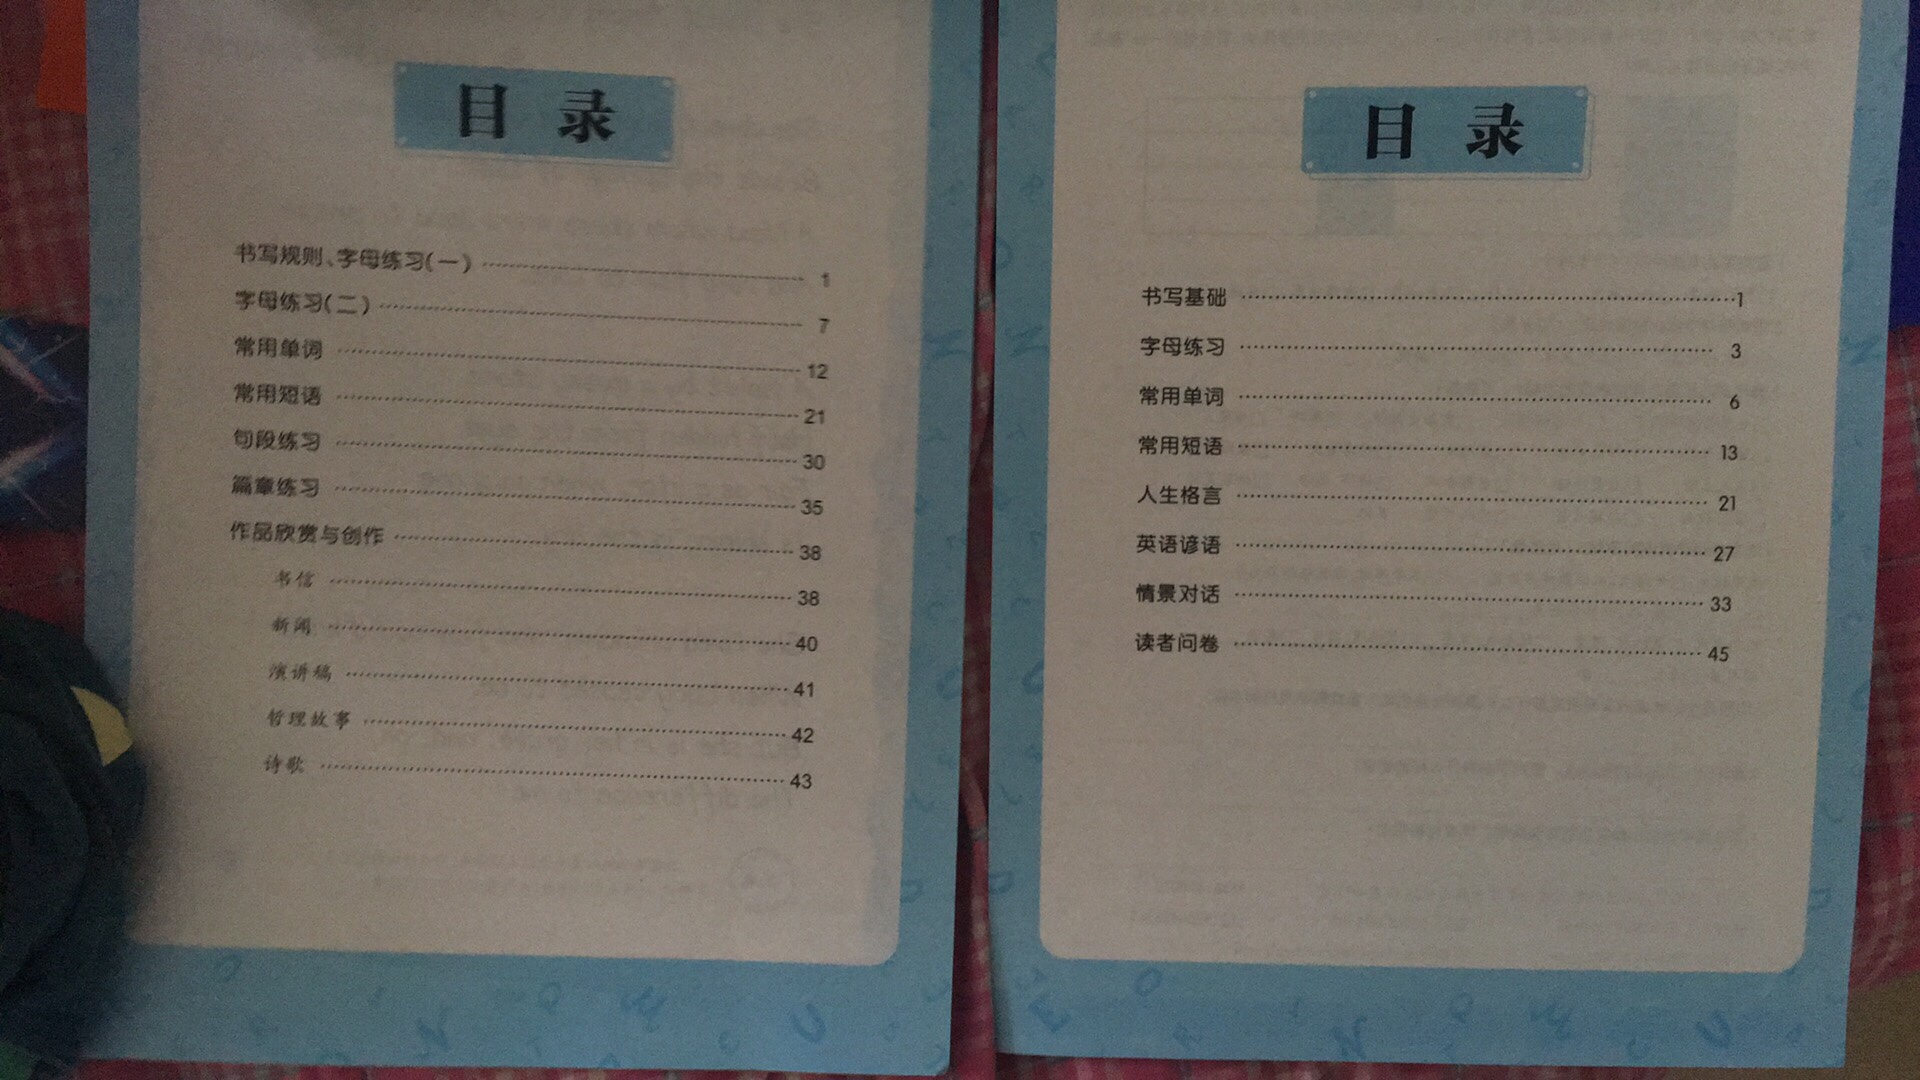 目 录
书写规则、字母练习(一) 1
字母练习(二) 7
常用单词 12
常用短语 21
句段练习 30
篇章练习 35
作品欣赏与创作 38
书信 38
新闻 40
演讲稿 41
哲理故事 42
诗歌 43
目 录
书写基础 1
字母练习 3
常用单词 6
常用短语 13
人生格言 21
英语谚语 27
情景对话 33
读者问卷 45